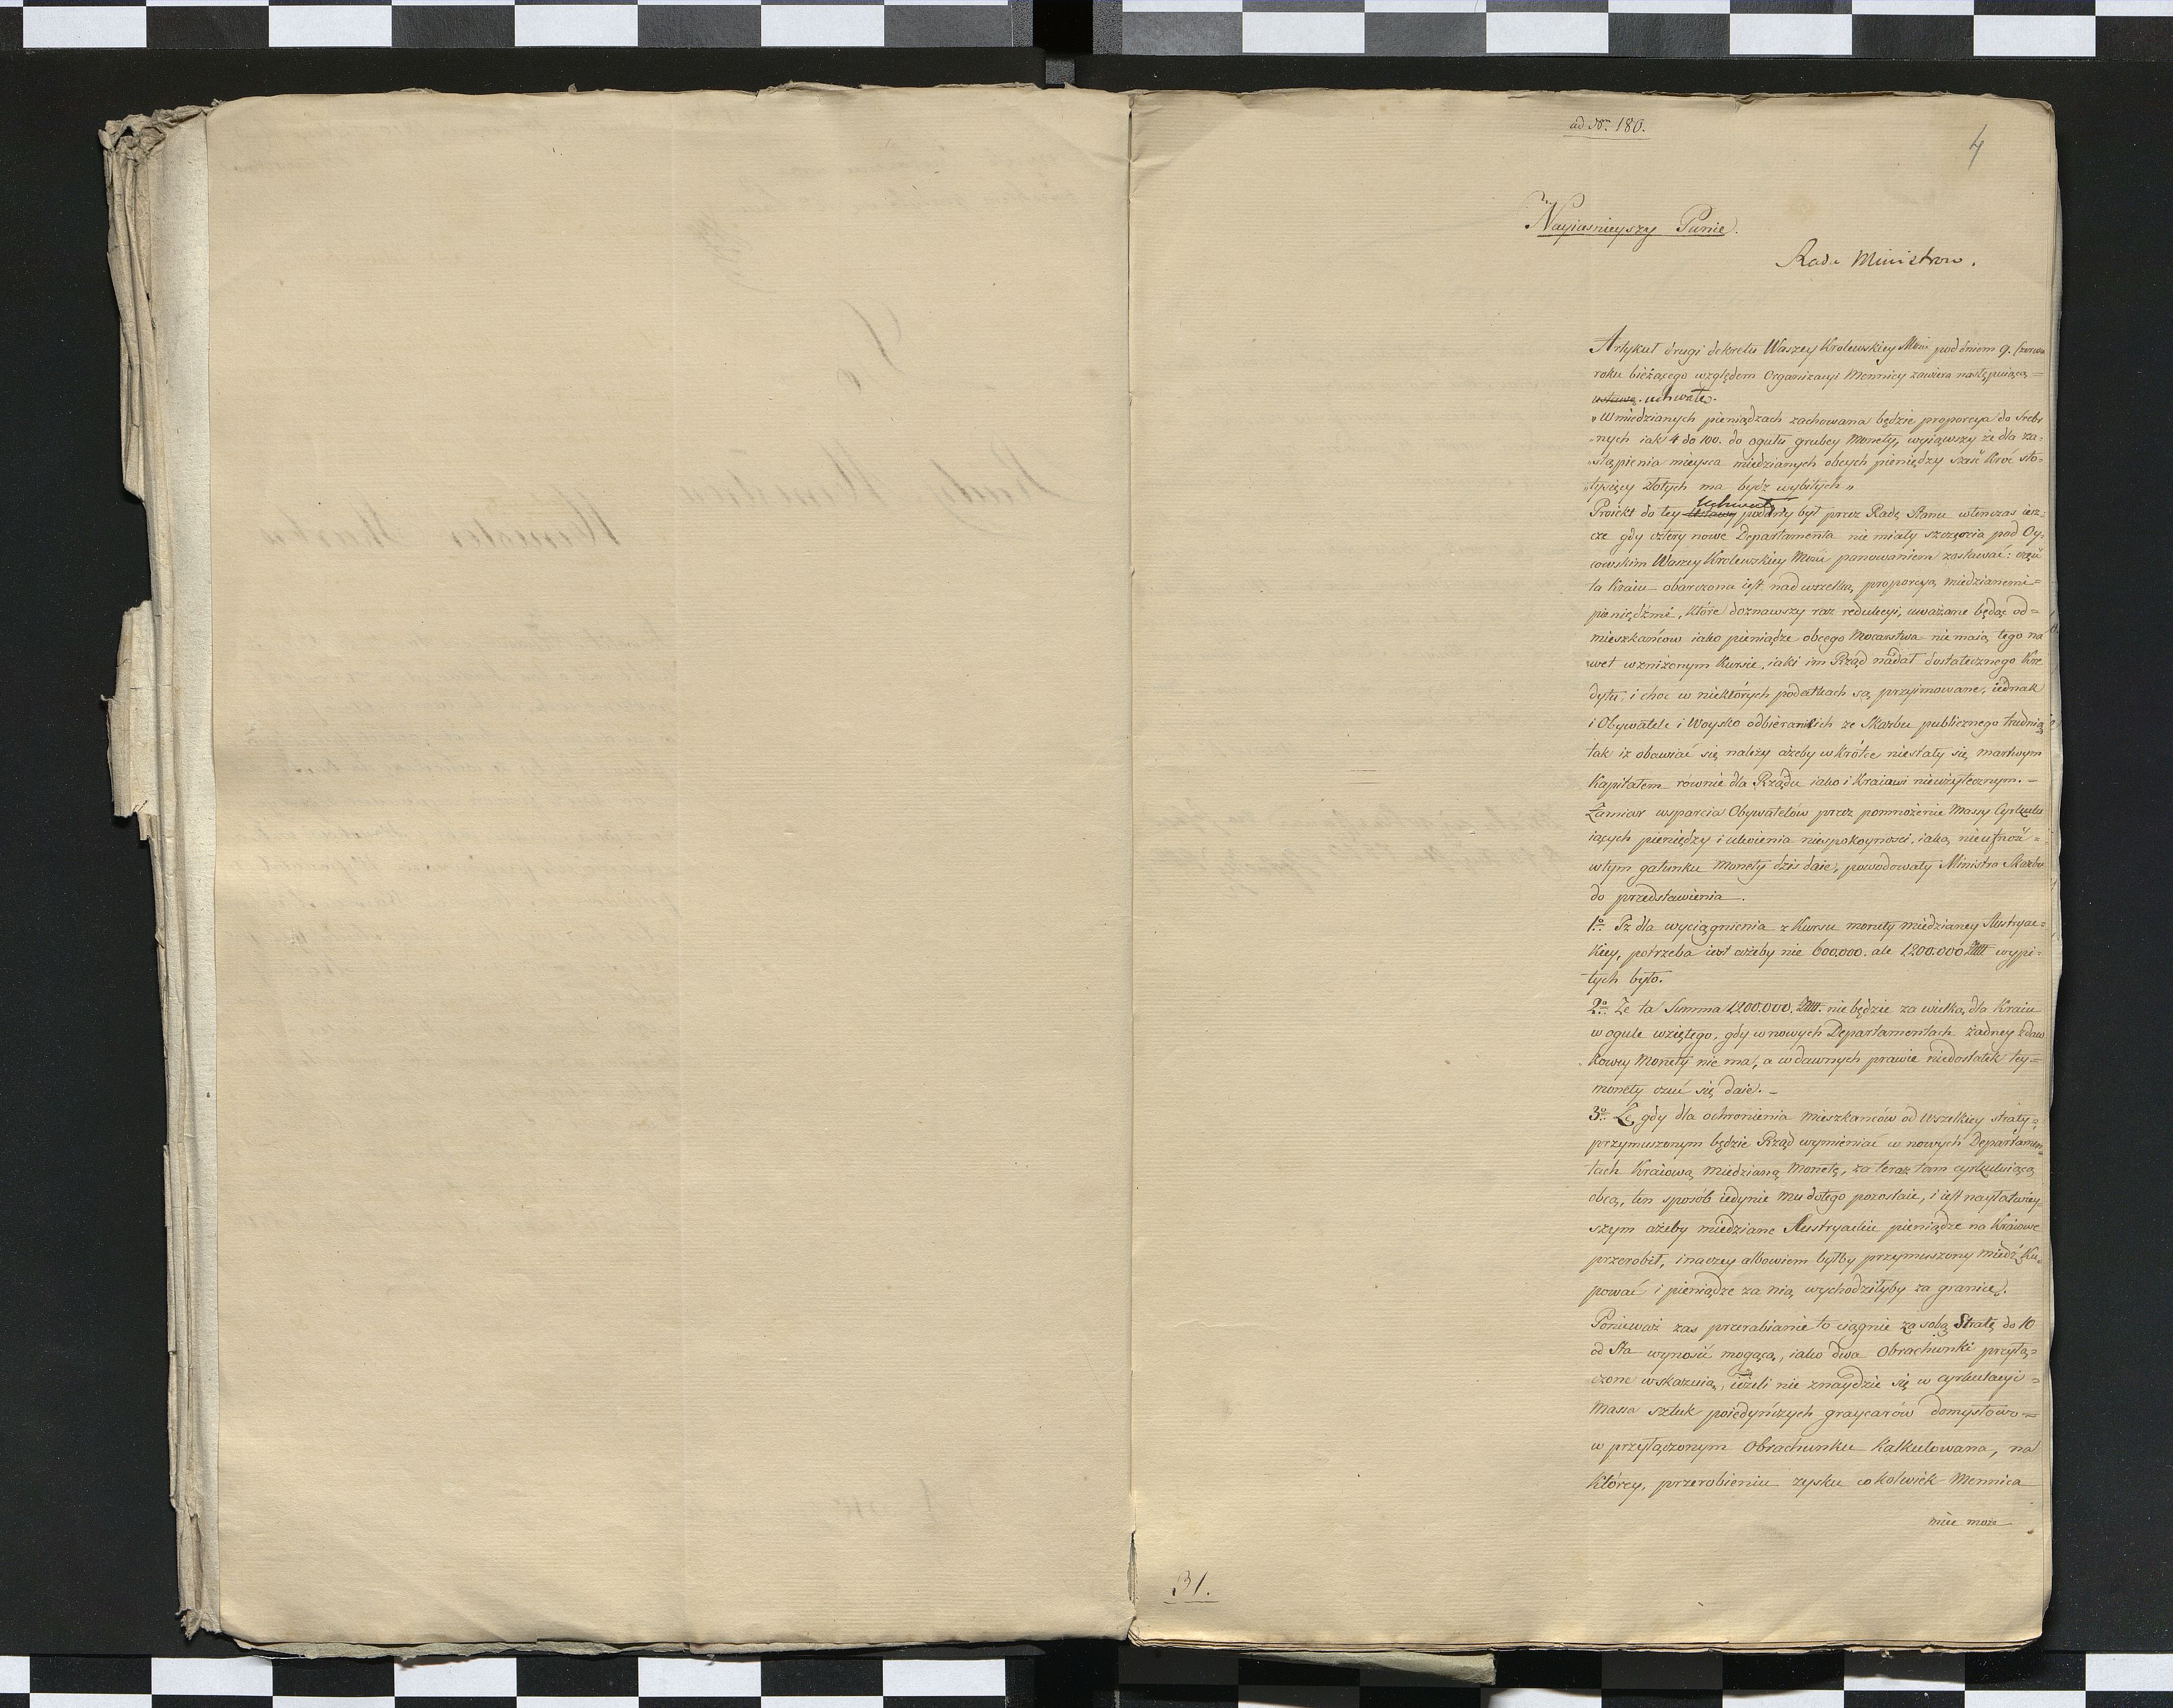 ad Nrm. 180.
4
Nayiaśnieyszy Panie.
Rada Ministrow.
Artykuł drugi dekretu Waszey Krolewskiey Mości pod dniem 9. Czerwca
roku bieżącego względem Organizacyi Mennicy zawiera następuiącą =
ustawę. uchwałę.
„W miedzianych pieniądzach zachowana będzie proporcya do Srebr
„nych iak 4 do 100. do ogułu grubey Monety, wyiąwszy że dla za=
„stąpienia mieysca miedzianych obcych pieniędzy sześć kroć sto=
„tysięcy złotych ma bydź wybitych„
Uchwały
Proiekt do tey Ustawy podany był przez Radę Stanu wtenczas iesz=
cze gdy cztery nowe Departamenta nie miały szczęścia pod Oy=
cowskim Waszey Krolewskiey Mości panowaniem zostawać: część
ta Kraiu obarczona iest nad wszelką proporcyą miedzianemi =
pieniędźmi, które doznawszy raz redukcyi, uważane będąc od =
mieszkańcow iako pieniądze obcego Mocarstwa nie maią tego na
wet w zniżonym Kursie, iaki im Rząd nadał dostatecznego Kre
dytu i choc w niektórych podatkach są przyimowane, iednak
i Obywatele i Woysko odbieranie ich ze Skarbu publicznego trudnią
tak iż obawiać się należy ażeby wkrótce niestały się martwym
Kapitałem równie dla Rządu iako i Kraiowi nieużytecznym. –
Zamiar wsparcia Obywatelów przez pomnożenie Massy Cyrkulu
iących pieniędzy i ubicia niespokoyności, iaką nieufność =
w tym gatunku Monety dziś daie, powodowały Ministra Skarbu
do przedstawienia.
1o. Iż dla wyciągnienia z Kursu monety miedzianey Austryac=
kiey, potrzeba iest ażeby nie 600.000. ale 1200.000 wypi=
tych było.
2o. Że ta Summa 1200.000. nie będzie za wielką dla Kraiu
w ogule wziętego, gdy w nowych Departamentach żadney zdaw
kowey Monety nie ma, a w dawnych prawie niedostatek tey =
monety czuć się daie. –
3o. Że gdy dla ochronienia mieszkańców od wszelkiey straty =
przymuszonym będzie Rząd wymieniać w nowych Departamen=
tach Kraiową miedzianą Monetę, za teraz tam cyrkuluiącą
obcą, ten sposób iedynie mu do tego pozostaie, i iest nayłatwiey=
szym ażeby miedziane Austryackie pieniądze na Kraiowe
przerobił, inaczey albowiem byłby przymuszony miedź Ku=
pować i pieniądze za nią wychodziłyby za granicę.
Ponieważ zas przerabianie to ciągnie za sobą Stratę do 10
od Sta wynosić mogącą, iako dwa Obrachunki przyłą=
czone wskazuią, ieżeli nie znaydzie się w cyrkulacyi =
Massa sztuk poiedyńczych graycarów domysłowo =
w przyłączonym Obrachunku Kalkulowana, na
którey, przerobieniu zysku cokolwiek Mennica
mieć może
31.